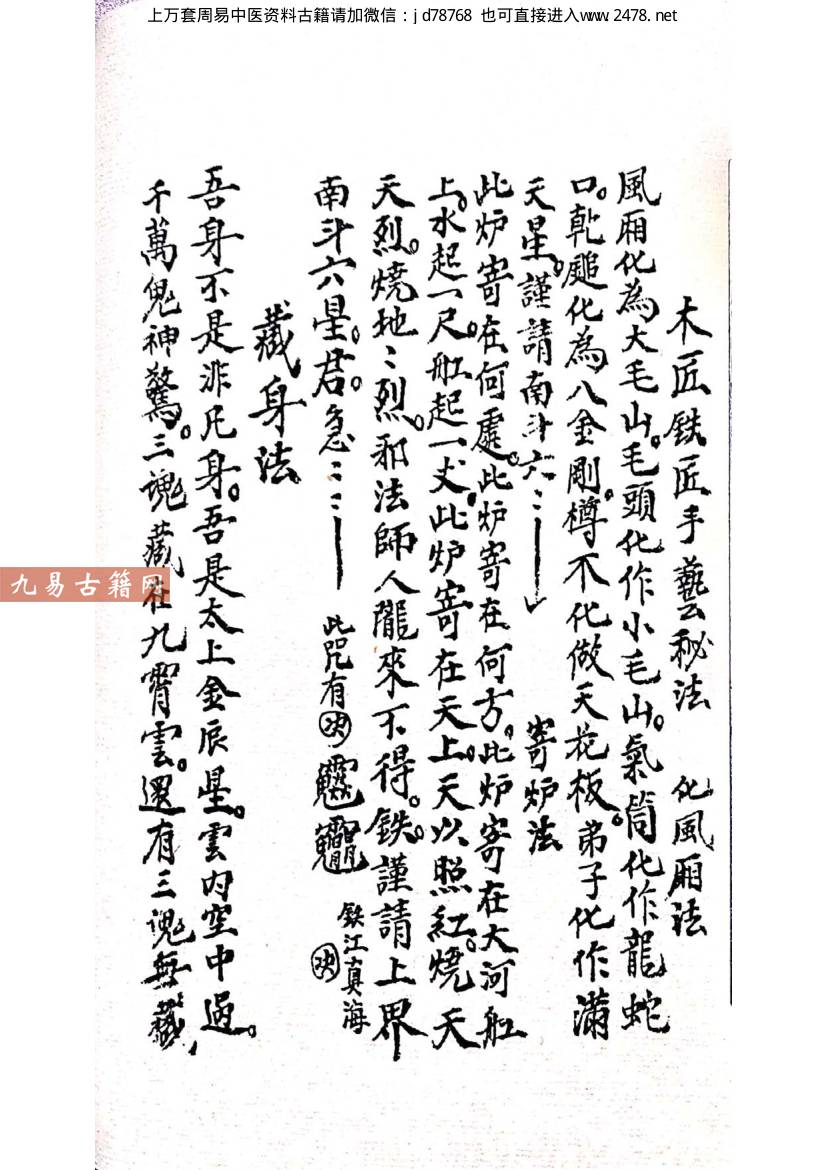 上万套周易中医资料古籍请加微信：jd78768 也可直接进入www.2478.net
木匠铁匠手藝秘法 化風厢法
風厢化為大毛山。毛頭化作小毛山。氣筒化作龍蛇
口。乾颩化為八金剛。樽不化做天花板。弟子化作滿
天星。謹請南斗六：： 寄炉法
此炉寄在何處。此炉寄在何方。此炉寄在大河舡
上。水起一尺舡起一丈。此炉寄在天上。天以照紅。燒天
天烈。燒地：烈。邪法師人隴來不得。鉄。謹請上界
南斗六星。君。急：： 此咒有决 鉄江真海 决
藏身法
吾身不是非凡身。吾是太上金辰星。雲内空中過。
千萬鬼神驚。三魂藏在九霄雲。還有三魂無藏
九易古籍网